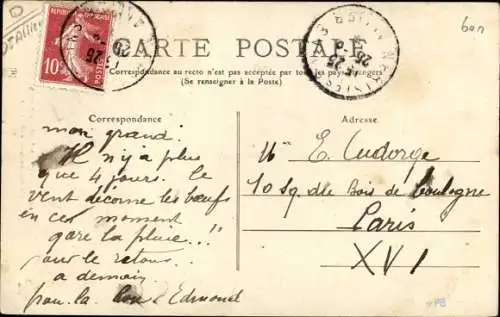 CARTE POSTALE
Correspondance au recto n'est pas acceptée par tous les pays étrangers
(Se renseigner à la Poste)
bon
10
Correspondance
mon grand.
Il n'y a plus
que 4 jours. Le
vent décorne les bœufs
en ces moment
gare la pluie...!!
pour le retour...
a demain
pour la Edmond
Adresse
E. Cudorge
10 Sq. du Bois de boulogne
Paris
XVI